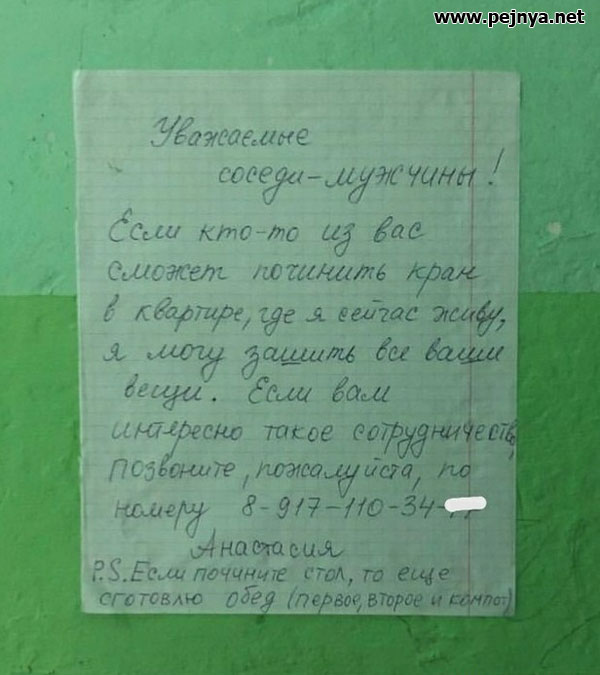 www.pejnya.net
Уважаемые
соседи-мужчины!
Если кто-то из вас
сможет починить кран
в квартире, где я сейчас живу,
я могу зашить все ваши
вещи. Если вам
интересно такое сотрудничество,
позвоните, пожалуйста, по
номеру 8-917-110-34-
Анастасия
P.S. Если почините стол, то еще
сготовлю обед (первое, второе и компот)